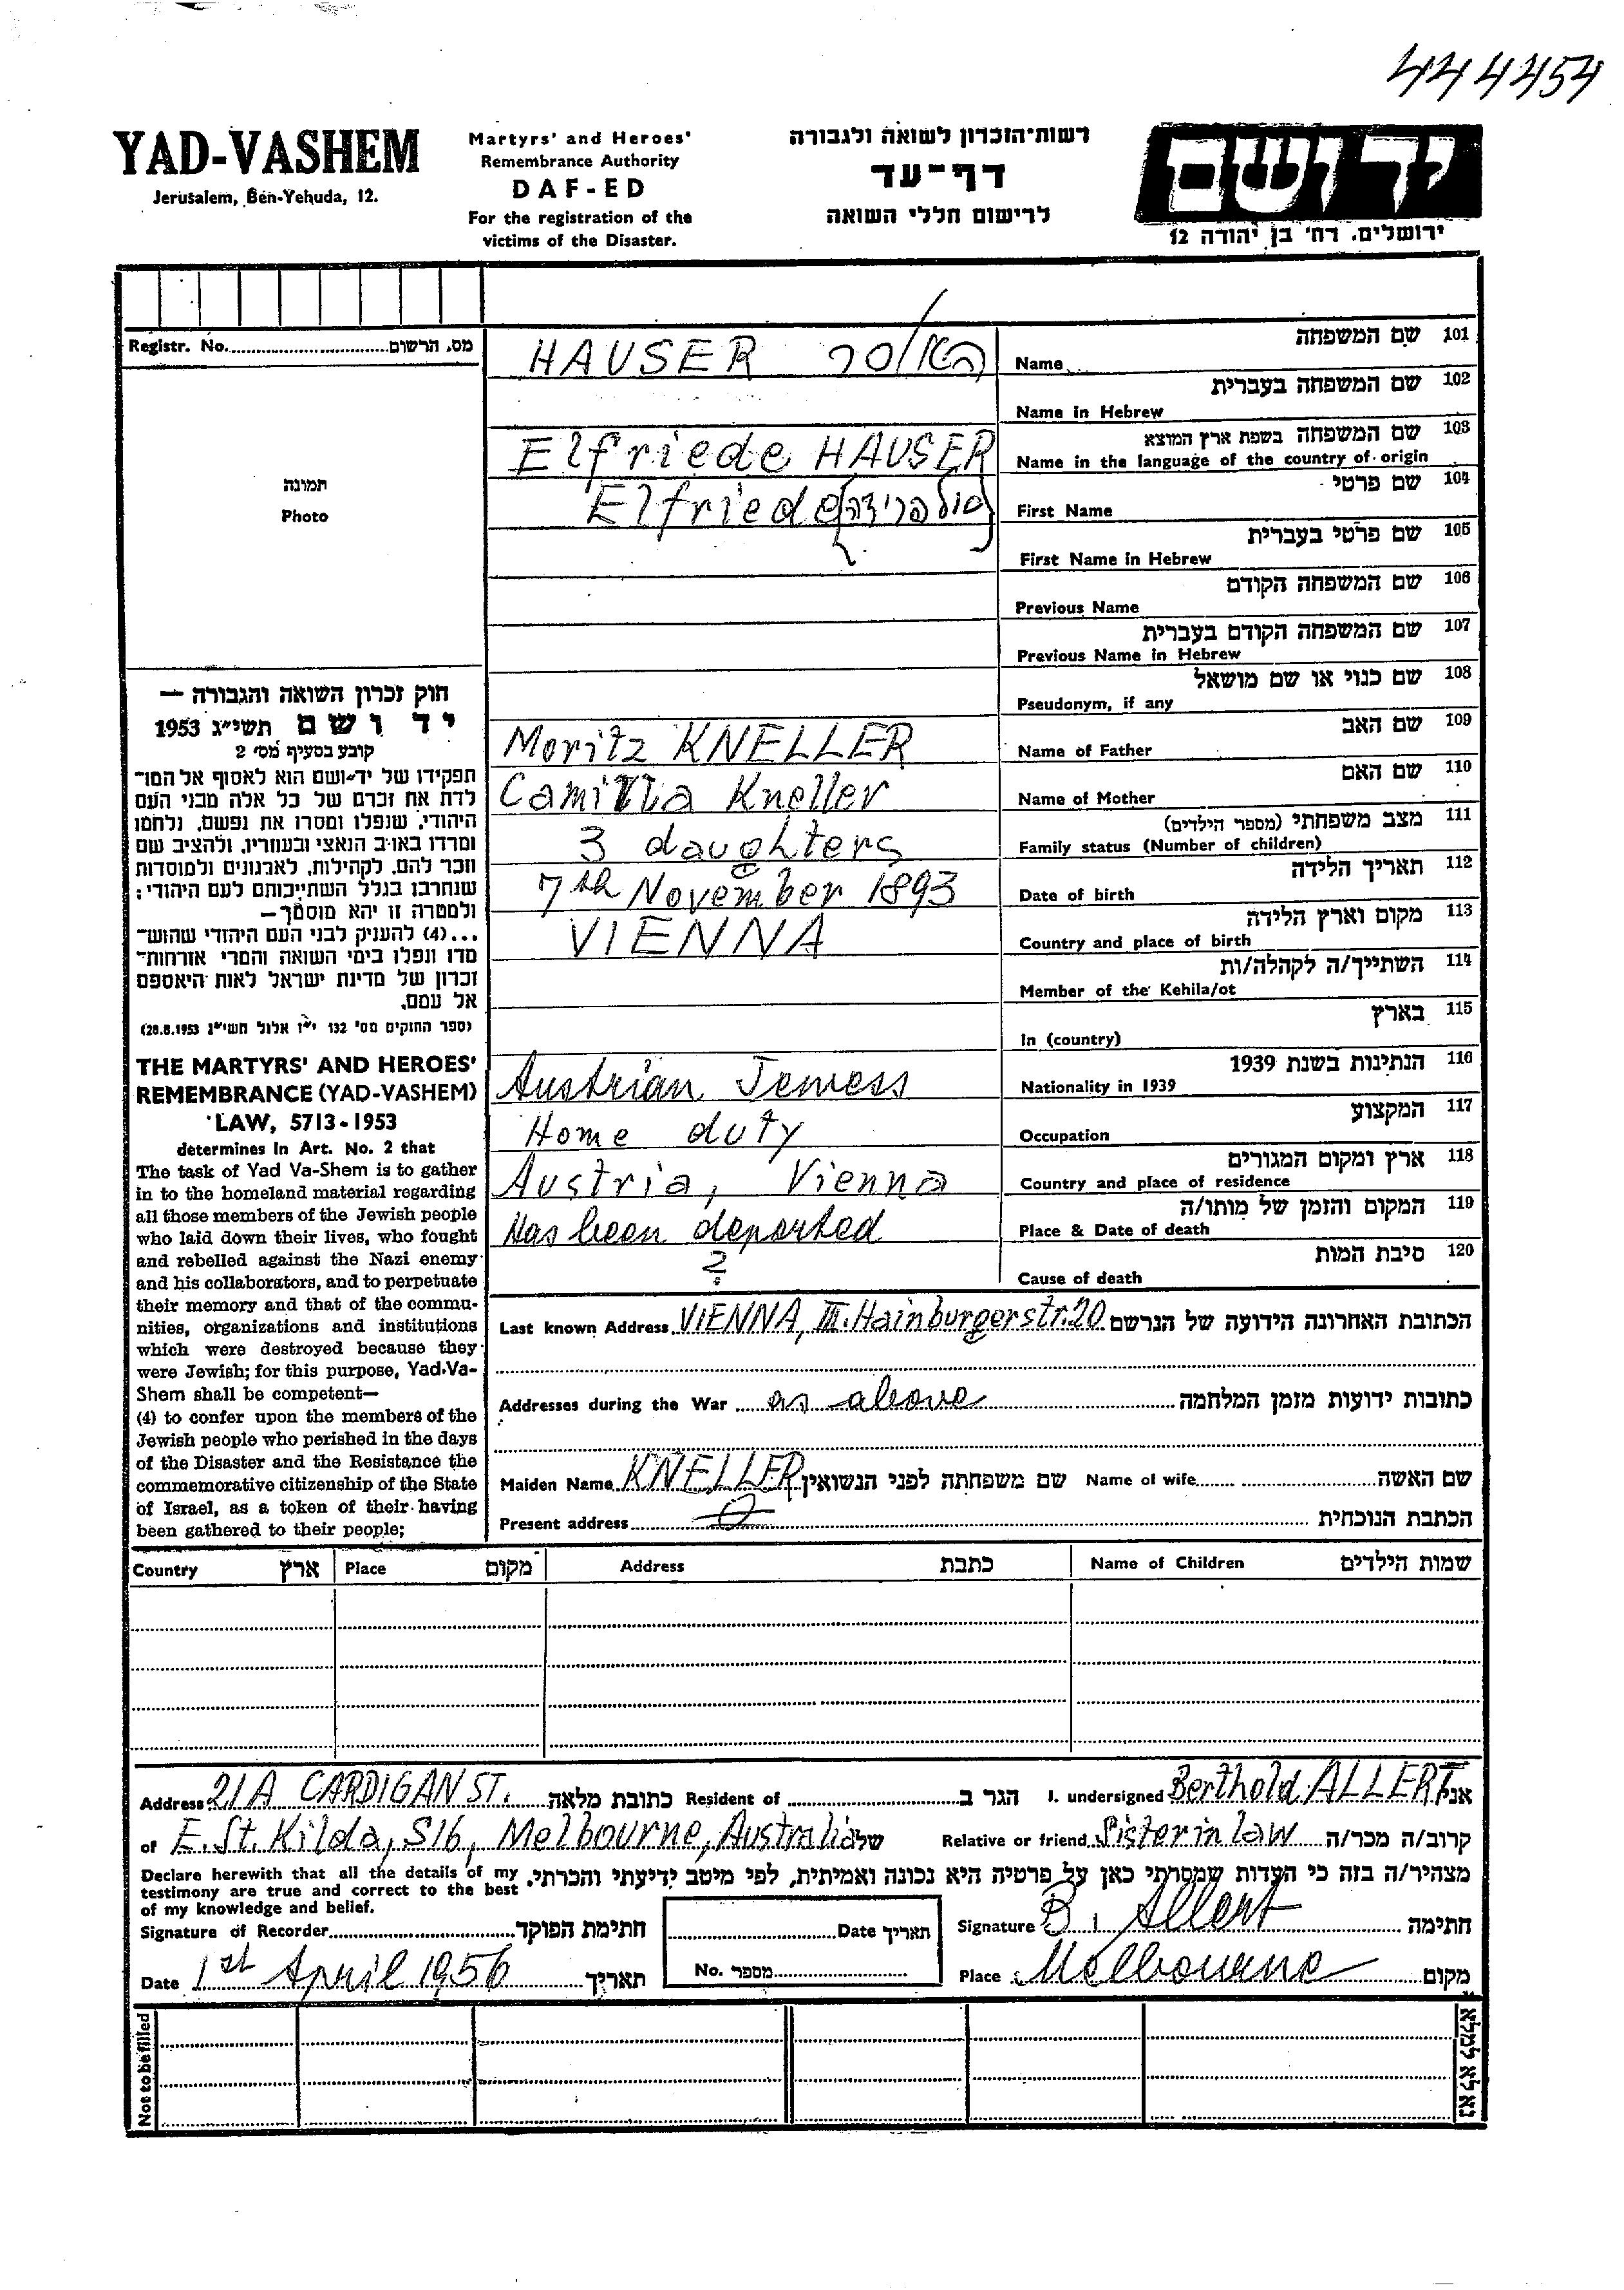 444454
YAD-VASHEM
Jerusalem, Ben-Yehuda, 12.
Martyrs' and Heroes'
Remembrance Authority
DAF-ED
For the registration of the
victims of the Disaster.
רשות-הזכרון לשואה ולגבורה
דף-עד
לרישום חללי השואה
יד ושם
ירושלים, רח' בן יהודה 12
Registr. No. מס. הרשום
תמונה
Photo
חוק זכרון השואה והגבורה —
יד ושם תשי"ג 1953
קובע בסעיף מס' 2
תפקידו של יד-ושם הוא לאסוף אל המו-
לדת את זכרם של כל אלה מבני העם
היהודי, שנפלו ומסרו את נפשם, נלחמו
ומרדו באויב הנאצי ובעוזריו, ולהציב שם
וזכר להם, לקהילות, לארגונים ולמוסדות
שנחרבו בגלל השתייכותם לעם היהודי;
ולמטרה זו יהא מוסמך—
...(4) להעניק לבני העם היהודי שהוש-
מדו ונפלו בימי השואה והמרי אזרחות-
זכרון של מדינת ישראל לאות היאספם
אל עמם.
(ספר החוקים מס' 132 י"ז אלול תשי"ג 28.8.1953)
THE MARTYRS' AND HEROES'
REMEMBRANCE (YAD-VASHEM)
LAW, 5713-1953
determines in Art. No. 2 that
The task of Yad Va-Shem is to gather
in to the homeland material regarding
all those members of the Jewish people
who laid down their lives, who fought
and rebelled against the Nazi enemy
and his collaborators, and to perpetuate
their memory and that of the commu-
nities, organizations and institutions
which were destroyed because they
were Jewish; for this purpose, Yad-Va-
Shem shall be competent—
(4) to confer upon the members of the
Jewish people who perished in the days
of the Disaster and the Resistance the
commemorative citizenship of the State
of Israel, as a token of their having
been gathered to their people;
HAUSER האוסר Name שם המשפחה 101
Name in Hebrew שם המשפחה בעברית 102
Elfriede HAUSER Name in the language of the country of origin שם המשפחה בשפת ארץ המוצא 103
Elfriede First Name שם פרטי 104
First Name in Hebrew שם פרטי בעברית 105
Previous Name שם המשפחה הקודם 106
Previous Name in Hebrew שם המשפחה הקודם בעברית 107
Pseudonym, if any שם כנוי או שם מושאל 108
Moritz KNELLER Name of Father שם האב 109
Camilla Kneller Name of Mother שם האם 110
3 daughters Family status (Number of children) מצב משפחתי (מספר הילדים) 111
7th November 1893 Date of birth תאריך הלידה 112
VIENNA Country and place of birth מקום וארץ הלידה 113
Member of the Kehila/ot השתייך/ה לקהלה/ות 114
In (country) בארץ 115
Austrian Jewess Nationality in 1939 הנתינות בשנת 1939 116
Home duty Occupation המקצוע 117
Austria, Vienna Country and place of residence ארץ ומקום המגורים 118
Has been deported Place & Date of death המקום והזמן של מותו/ה 119
? Cause of death סיבת המות 120
Last known Address VIENNA, III. Hainburgerstr. 20 הכתובת האחרונה הידועה של הנרשם
Addresses during the War as above כתובות ידועות מזמן המלחמה
Maiden Name KNELLER שם משפחתה לפני הנשואין Name of wife שם האשה
Present address הכתבת הנוכחית
Country ארץ Place מקום Address כתבת Name of Children שמות הילדים
Address 21A CARDIGAN ST. כתובת מלאה Resident of הגר ב I. undersigned Berthold ALLERT אני
of E. St. Kilda, S16, Melbourne, Australia של Relative or friend Sister in law קרוב/ה מכר/ה
Declare herewith that all the details of my
testimony are true and correct to the best
of my knowledge and belief.
מצהיר/ה בזה כי העדות שמסרתי כאן על פרטיה היא נכונה ואמיתית, לפי מיטב ידיעתי והכרתי.
Signature of Recorder חתימת הפוקד Date תאריך Signature B. Allert חתימה
Date 1st April 1956 תאריך No. מספר Place Melbourne מקום
Not to be filled נא לא למלא